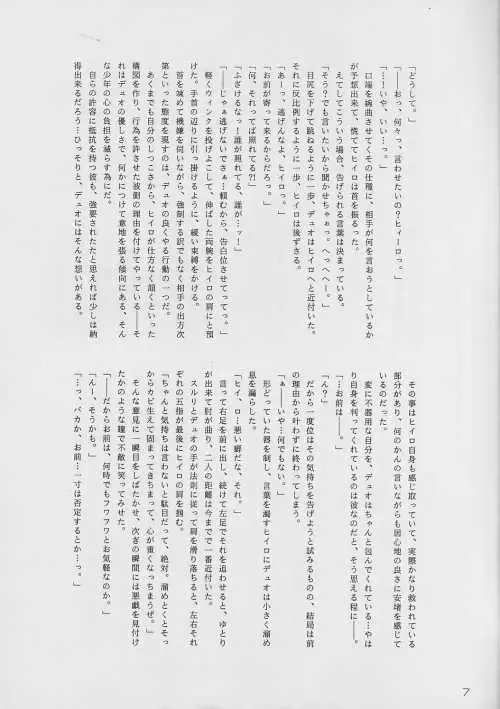 「どうして。」
「――おっ、何々っ、言わせたいの？ヒィーロっ。」
「…！いや、いい…っ。」
口端を綺曲させてくその仕種に、相手が何を言おうとしているか
が予想出来て、慌ててヒイロは首を振った。
えてしてこういう場合、告げられる言葉は決まっている。
「そう？でも言いたいから聞かせちゃぁ。へっへへー。」
目尻を下げて跳ねるように一歩、デュオはヒイロへと近付いた。
それに反比例するように一歩、ヒイロは後ずさる。
「あーっ、逃げんなよ、ヒイロっ。」
「お前が寄って来るからだろっ。」
「何、それってば照れてる？」
「ふざけるなっ！誰が照れてる、誰がーッ！」
「――じゃぁ逃げないでさぁ…頼むから、告白位させてってっ。」
軽くウィンクを投げよこして、伸ばした両腕をヒイロの肩にと預
けた。手首の辺りに引っ掛けるように、緩い束縛をかける。
首を竦めて機嫌を伺いながら、強制する訳でもなく相手の出方次
第といった態度を現すのは、デュオの良くやる行動の一つだ。
あくまでも自分のしつこさから、ヒイロが仕方なく頷くといった
構図を作り、行為を許させた彼側の理由を付けてやっている――そ
れはデュオの優しさで、何かにつけて意地を張る傾向にある、そん
な少年の心の負担を減らす為にだ。
自らの許容に抵抗を持つ彼も、強要されたと思えれば少しは納
得出来るだろう…ひっそりと、デュオにはそんな想いがある。
その事はヒイロ自身も感じ取っていて、実際かなり救われている
部分があり、何のかんの言いながらも居心地の良さに安堵を感じて
いるのだった。
変に不器用な自分を、デュオはちゃんと包んでくれている…やは
り自身を判ってくれているのは彼なのだと、そう思える程に――。
「…お前は――。」
「ん？」
だから一度位はその気持ちを告げようと試みるものの、結局は前
の理由から叶わずに終わってしまう。
「あ――いや…何でもない。」
形どっていた器を制し、言葉を濁すヒイロにデュオは小さく溜め
息を漏らした。
「ヒイ、ロ…悪い癖だな、それ。」
言って右足を前に出し、続けて左足でそれを追わせると、ゆとり
が出来て肘が曲り、二人の距離は今までで一番近付いた。
スルリとデュオの手が法則に従って肩を滑り落ちると、左右それ
ぞれの五指が最後にヒイロの肩を掴む。
「ちゃんと気持ちは言わないと駄目だって、絶対。溜めとくとそっ
からカビ生えて固まってきちまって、心が重くなっちまうぜ。」
そんな意見に一瞬目をしばたかせ、次ぎの瞬間には悪戯を見付け
たかのような瞳で不敵に笑ってみせた。
「――だからお前は、何時でもフワフワとお気軽なのか。」
「んー、そうかも。」
「…っ、バカか、お前…一寸は否定するとか…っ。」
7